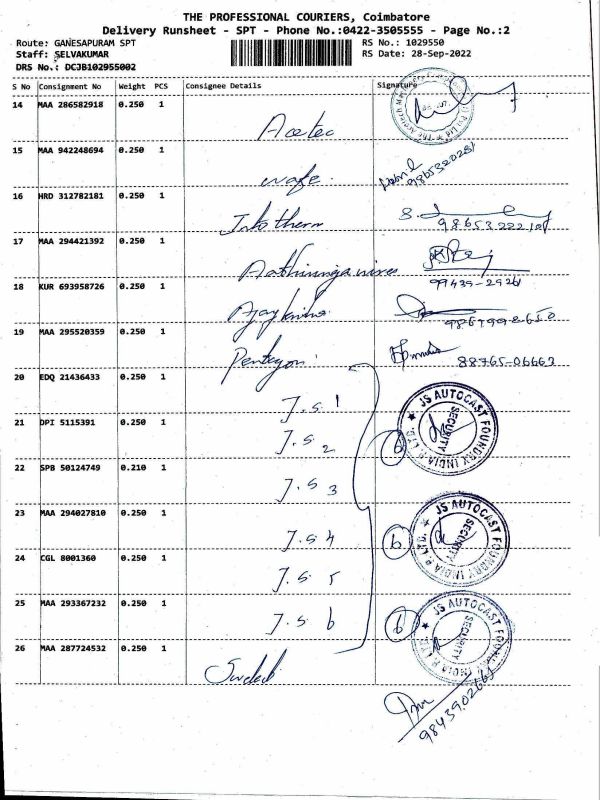 THE PROFESSIONAL COURIERS, Coimbatore
Delivery Runsheet - SPT - Phone No.:0422-3505555 - Page No.:2
Route: GANESAPURAM SPT RS No.: 1029550
Staff: SELVAKUMAR RS Date: 28-Sep-2022
DRS No.: DCJB102955002
S No Consignment No Weight PCS Consignee Details Signature
14 MAA 286582918 0.250 1
Acetec
15 MAA 942248694 0.250 1
wafe
9865320281
16 HRD 312782181 0.250 1
98653222101
17 MAA 294421392 0.250 1
99439-2921
18 KUR 693958726 0.250 1
19 MAA 295520359 0.250 1
Pentagon 88765-06663
20 EDQ 21436433 0.250 1
J.S 1
JS AUTOCAST FOUNDRY INDIA P. LTD. SECURITY
21 DPI 5115391 0.250 1
J.S 2
22 SPB 50124749 0.210 1
J.S 3
23 MAA 294027810 0.250 1
J.S 4
JS AUTOCAST FOUNDRY INDIA P. LTD. SECURITY
24 CGL 8001360 0.250 1
J.S 5
25 MAA 293367232 0.250 1
J.S 6
JS AUTOCAST FOUNDRY INDIA P. LTD. SECURITY
26 MAA 287724532 0.250 1